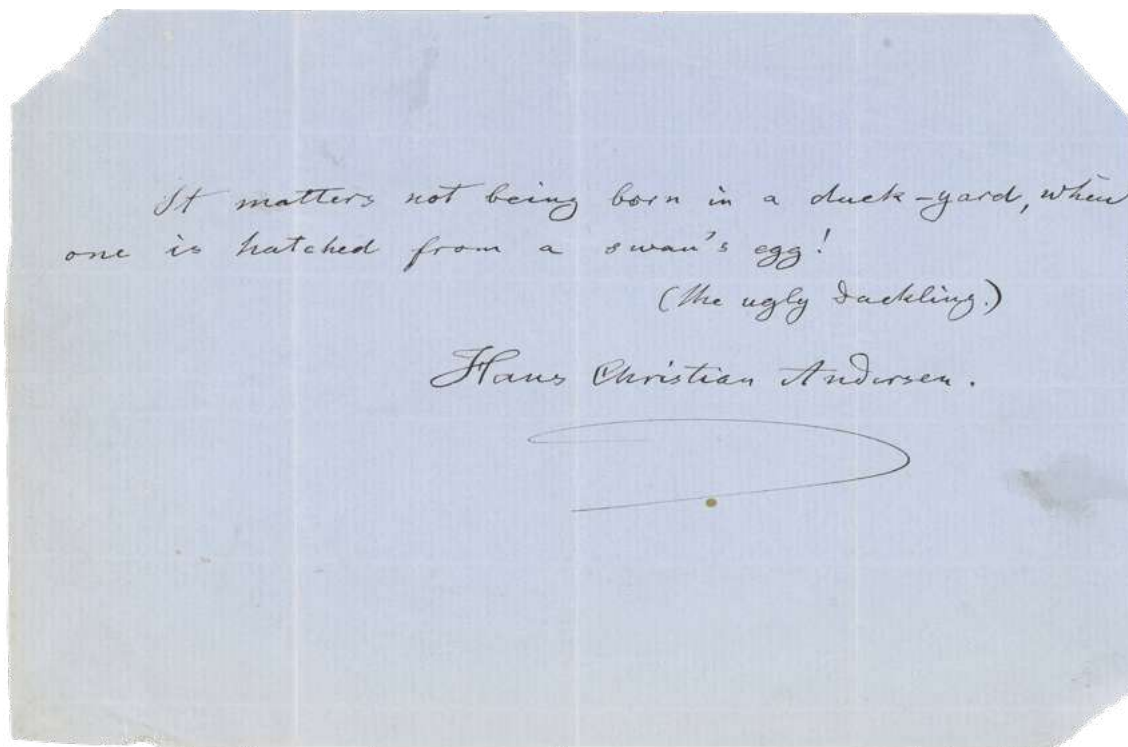 It matters not being born in a duck-yard, when
one is hatched from a swan's egg!
(the ugly duckling.)
Hans Christian Andersen.